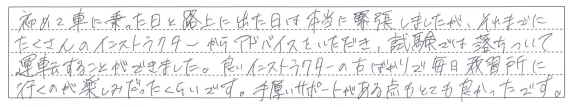 初めて車に乗った日と路上に出た日は本当に緊張しましたが、それまでに
たくさんのインストラクターからアドバイスをいただき、試験では落ちついて
運転することができました。良いインストラクターの方ばかりで毎日教習所に
行くのが楽しみだったくらいです。手厚いサポートがある点もとても良かったです。